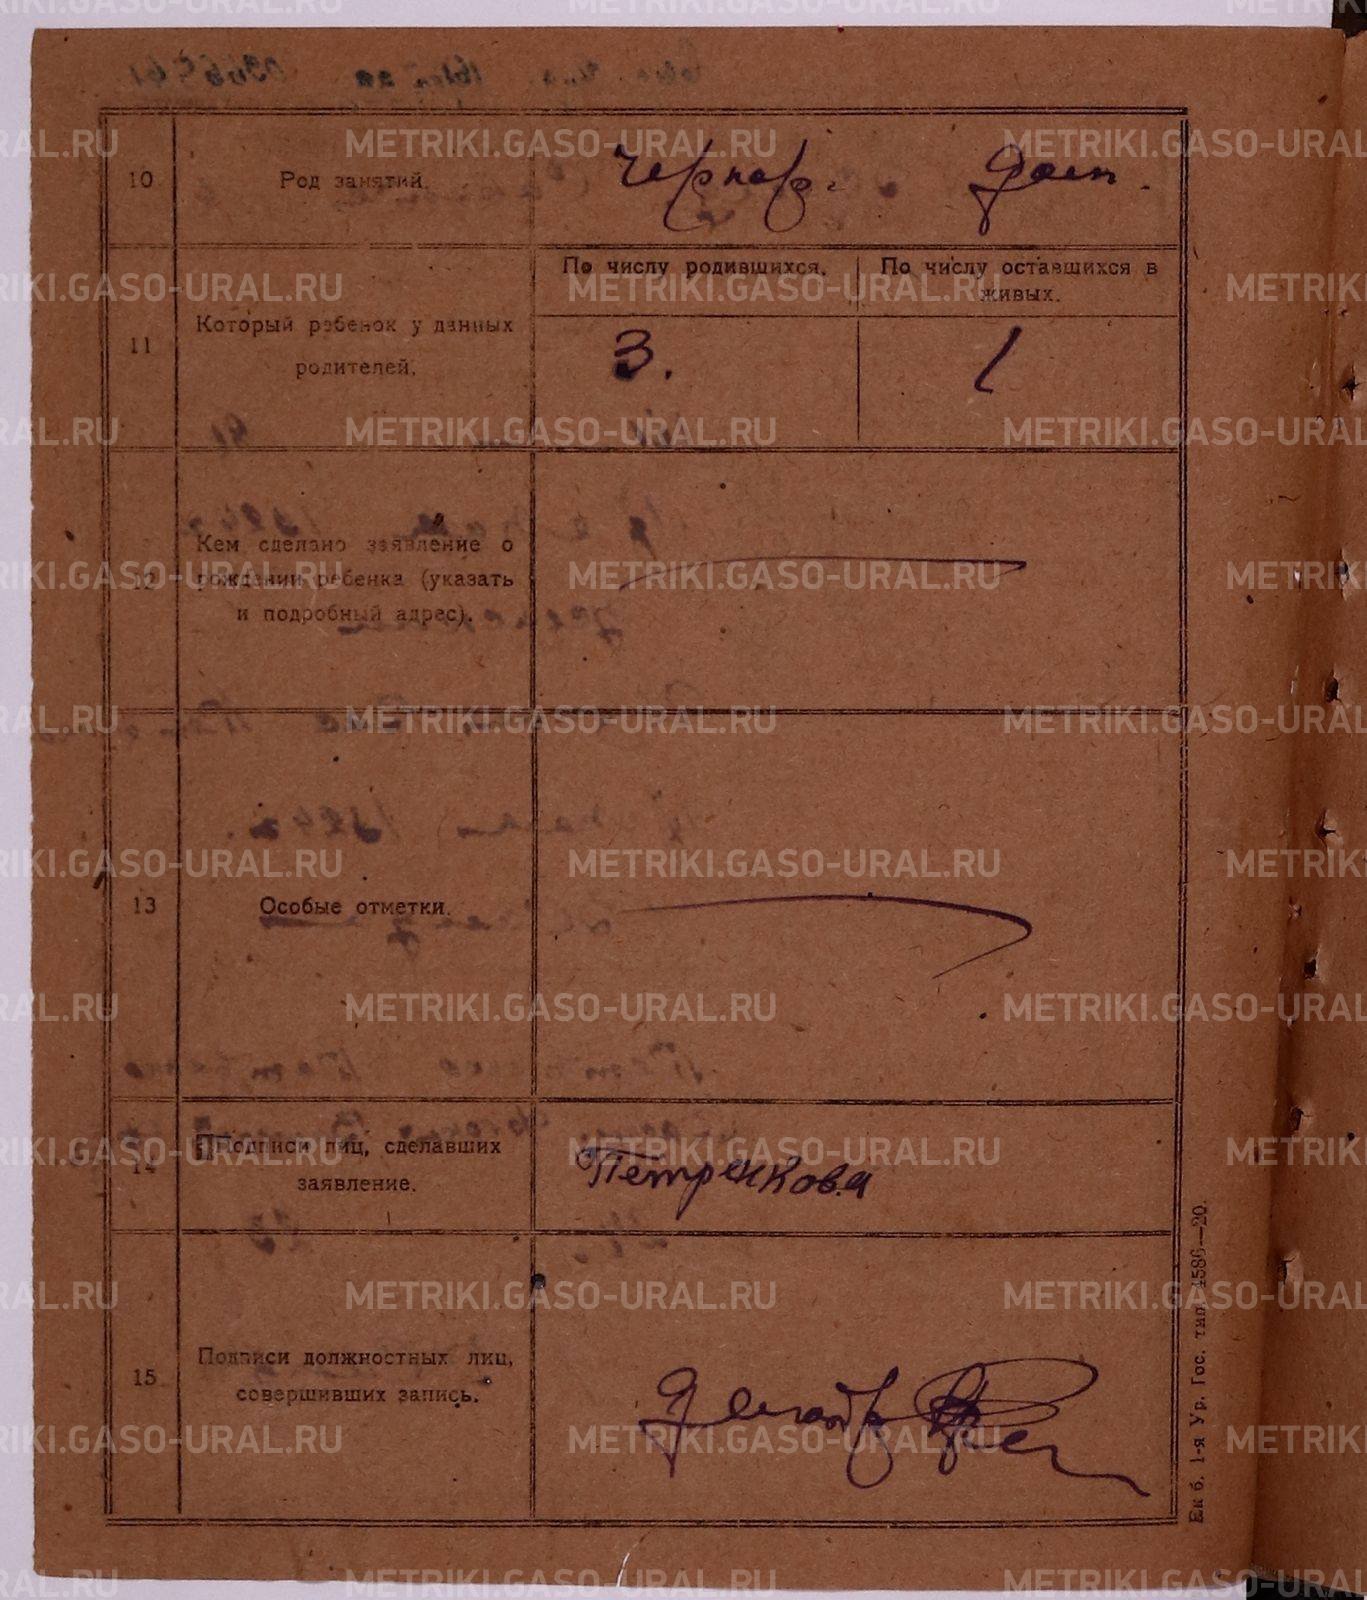 10 Род занятий. Чернор. Дом.
11 Который ребенок у данных родителей. По числу родившихся. По числу оставшихся в живых.
3. 1
12 Кем сделано заявление о
рождении ребенка (указать
и подробный адрес).
13 Особые отметки.
14 Подписи лиц, сделавших
заявление. Петренкова
15 Подписи должностных лиц,
совершивших запись.
Ек б. 1-я Ур. Гос. тип. 4586—20.
METRIKI.GASO-URAL.RU